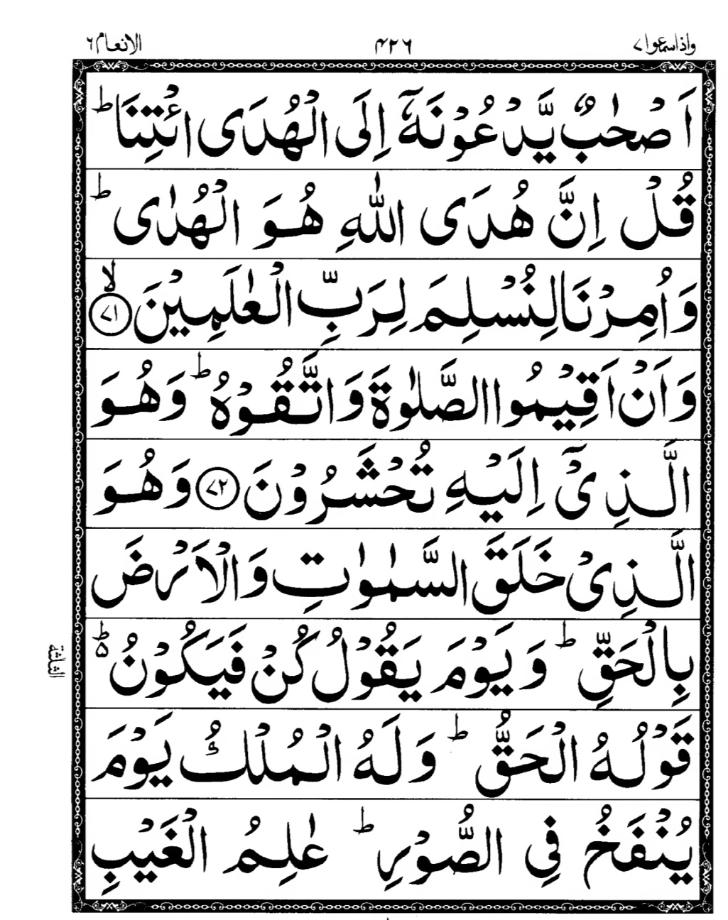 واذاسمعوا۷ ۴۲۶ الانعام۶
اَصْحٰبٌ يَّدْعُوْنَهٗۤ اِلَى الْهُدَى ائْتِنَا ؕ
قُلْ اِنَّ هُدَى اللّٰهِ هُوَ الْهُدٰى ؕ
وَاُمِرْنَا لِنُسْلِمَ لِرَبِّ الْعٰلَمِيْنَ ۙ﴿۷۱﴾
وَاَنْ اَقِيْمُوا الصَّلٰوةَ وَاتَّقُوْهُ ؕ وَهُوَ
الَّذِىْۤ اِلَيْهِ تُحْشَرُوْنَ ﴿۷۲﴾ وَهُوَ
الَّذِىْ خَلَقَ السَّمٰوٰتِ وَالْاَرْضَ
بِالْحَقِّ ؕ وَيَوْمَ يَقُوْلُ كُنْ فَيَكُوْنُ ۬ؕ
قَوْلُهُ الْحَقُّ ؕ وَلَهُ الْمُلْكُ يَوْمَ
يُنْفَخُ فِى الصُّوْرِ ؕ عٰلِمُ الْغَيْبِ
الثلثة